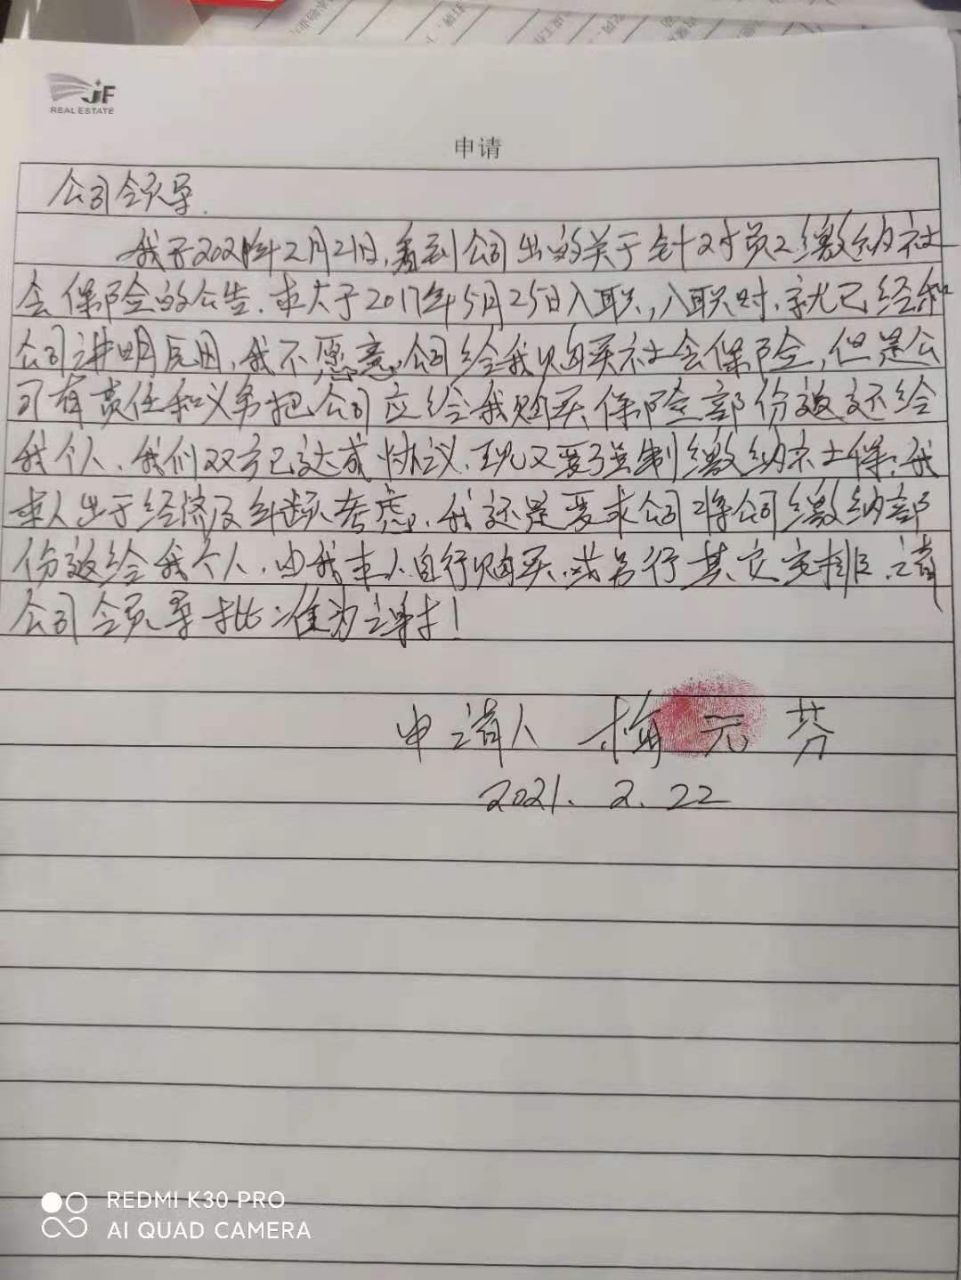 JF
REAL ESTATE
申请
公司领导
我于2021年2月21日,看到公司出的关于针对员工缴纳社
会保险的公告.本人于2017年5月25日入职,入职时,就已经和
公司讲明原因,我不愿意公司给我购买社会保险,但是公
司有责任和义务把公司应给我购买保险部份返还给
我个人.我们双方已达成协议.现又要强制缴纳社保,我
本人出于经济及年龄考虑,我还是要求公司将公司缴纳部
份返给我个人.由我本人自行购买,或另行其它安排.请
公司领导批准为谢!
申请人 梅元芬
2021.2.22
REDMI K30 PRO
AI QUAD CAMERA